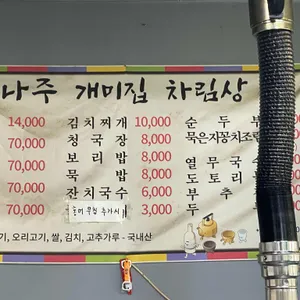 나주 개미집 차림상
14,000 김치찌개 10,000 순두부
70,000 청국장 8,000 묵은지꽁치조림
70,000 보리밥 8,000 열무국수
70,000 묵밥 8,000 도토리
70,000 잔치국수 6,000 부추
70,000 3,000 두
기, 오리고기, 쌀, 김치, 고추가루 - 국내산